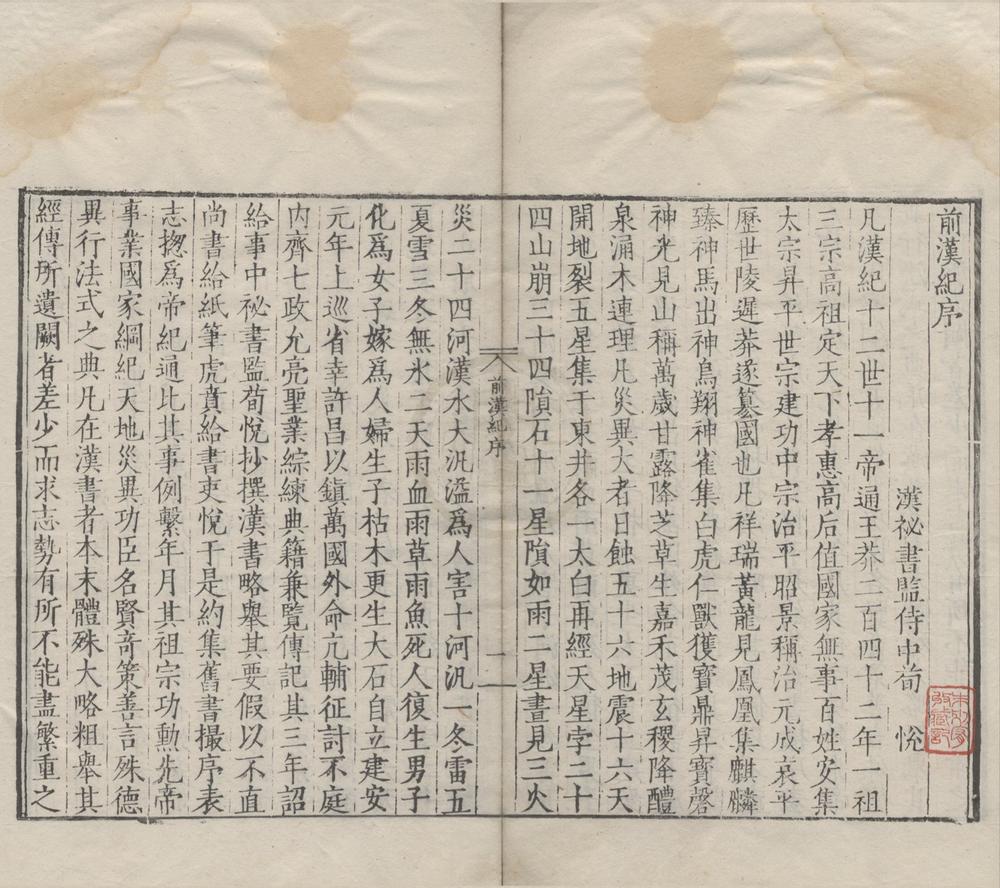 前漢紀序
漢祕書監侍中荀　悅
凡漢紀十二世十一帝通王莽二百四十二年一祖
三宗高祖定天下孝惠高后值國家無事百姓安集
太宗昇平世宗建功中宗治平昭景稱治元成哀平
歷世陵遲莽遂篡國也凡祥瑞黃龍見鳳凰集麒麟
臻神馬出神鳥翔神雀集白虎仁獸獲寶鼎昇寶磬
神光見山稱萬歲甘露降芝草生嘉禾茂玄稷降醴
泉涌木連理凡災異大者日蝕五十六地震十六天
開地裂五星集于東井各一太白再經天星孛二十
四山崩三十四隕石十一星隕如雨二星晝見三火
災二十四河漢水大汎溢為人害十河汎一冬雷五
夏雪三冬無氷二天雨血雨草雨魚死人復生男子
化為女子嫁為人婦生子枯木更生大石自立建安
元年上巡省幸許昌以鎮萬國外命亢輔征討不庭
內齊七政允亮聖業綜練典籍兼覽傳記其三年詔
給事中祕書監荀悅抄撰漢書略舉其要假以不直
尚書給紙筆虎賁給書吏悅于是約集舊書撮序表
志揔為帝紀通比其事例繫年月其祖宗功勳先帝
事業國家綱紀天地災異功臣名賢奇策善言殊德
異行法式之典凡在漢書者本末體殊大略粗舉其
經傳所遺闕者差少而求志勢有所不能盡繁重之
前漢紀序
一